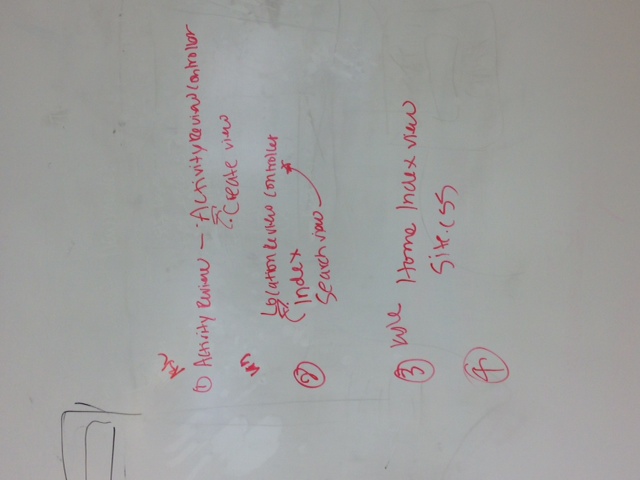 ① Activity Review - ActivityReviewController
Create view
LocationReview controller
② Index
Search view
③ Kyle Home Index view
Site.css
④